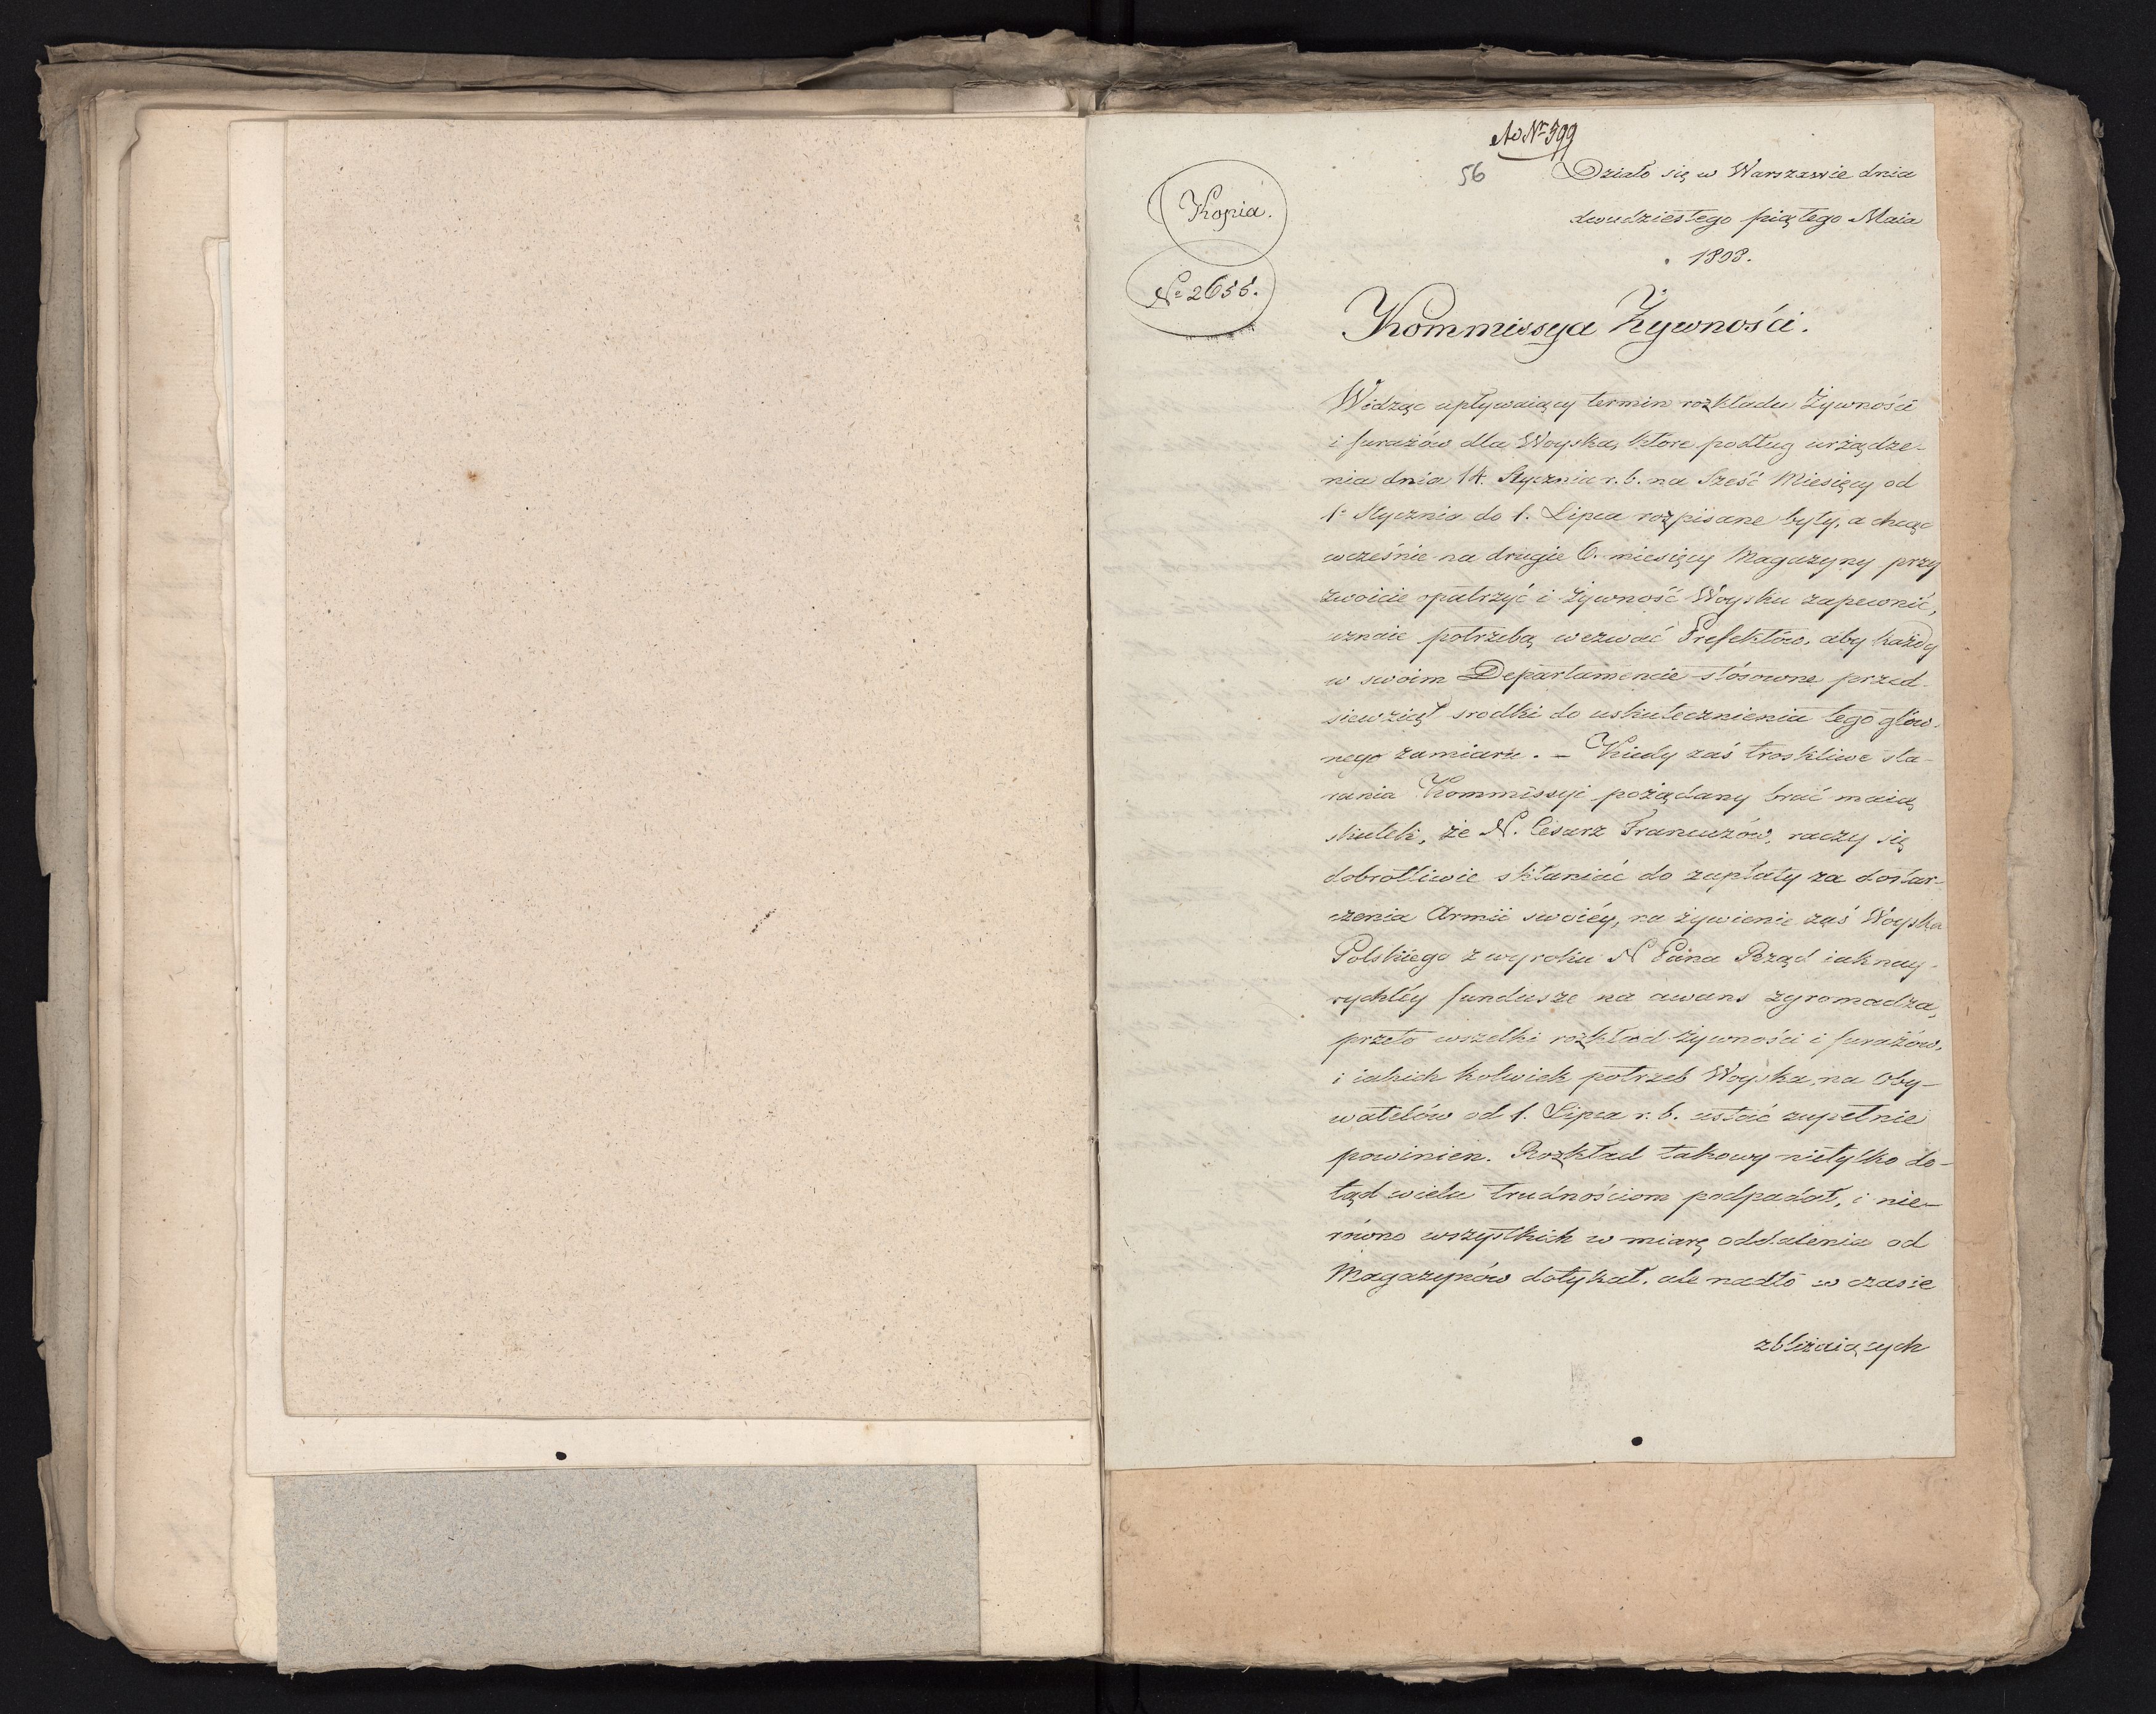 Ad Nr 399
56
Działo się w Warszawie dnia
dwudziestego piątego Maia
1808.
Kopia.
No 2655.
Kommissya Żywności.
Widząc upływaiący termin rozkładu żywności
i furażów dla Woyska, które podług urządze-
nia dnia 14. Stycznia r. b. na Sześć Miesięcy od
1o Stycznia do 1. Lipca rozpisane były, a chcąc
wcześnie na drugie 6. miesięcy Magazyny przy
zwoicie opatrzyć i żywność Woysku zapewnić,
uznaie potrzebą wezwać Prefektów, aby każdy
w swoim Departamencie stósowne przed-
siewziął srodki do uskutecznienia tego głów-
nego zamiaru. – Kiedy zaś troskliwe sta-
rania Kommissyi pożądany brać maią
skutek, że N. Cesarz Francuzów, raczy się
dobrotliwie skłaniać do zapłaty za dostar-
czenia Armii swoiéy, na żywienie zaś Woyska
Polskiego z wyroku N Pana Rząd iaknay-
rychléy fundusze na awans zgromadza,
przeto wszelki rozkład żywności i furażów,
i iakich kolwiek potrzeb Woyska, na Oby-
watelów od 1. Lipca r. b. ustać zupełnie
powinien. Rozkład takowy nietylko do-
tąd wielu trudnościom podpadał, i nie-
równo wszystkich w miarę oddalenia od
Magazynów dotykał, ale nadto w czasie
zbliżaiących